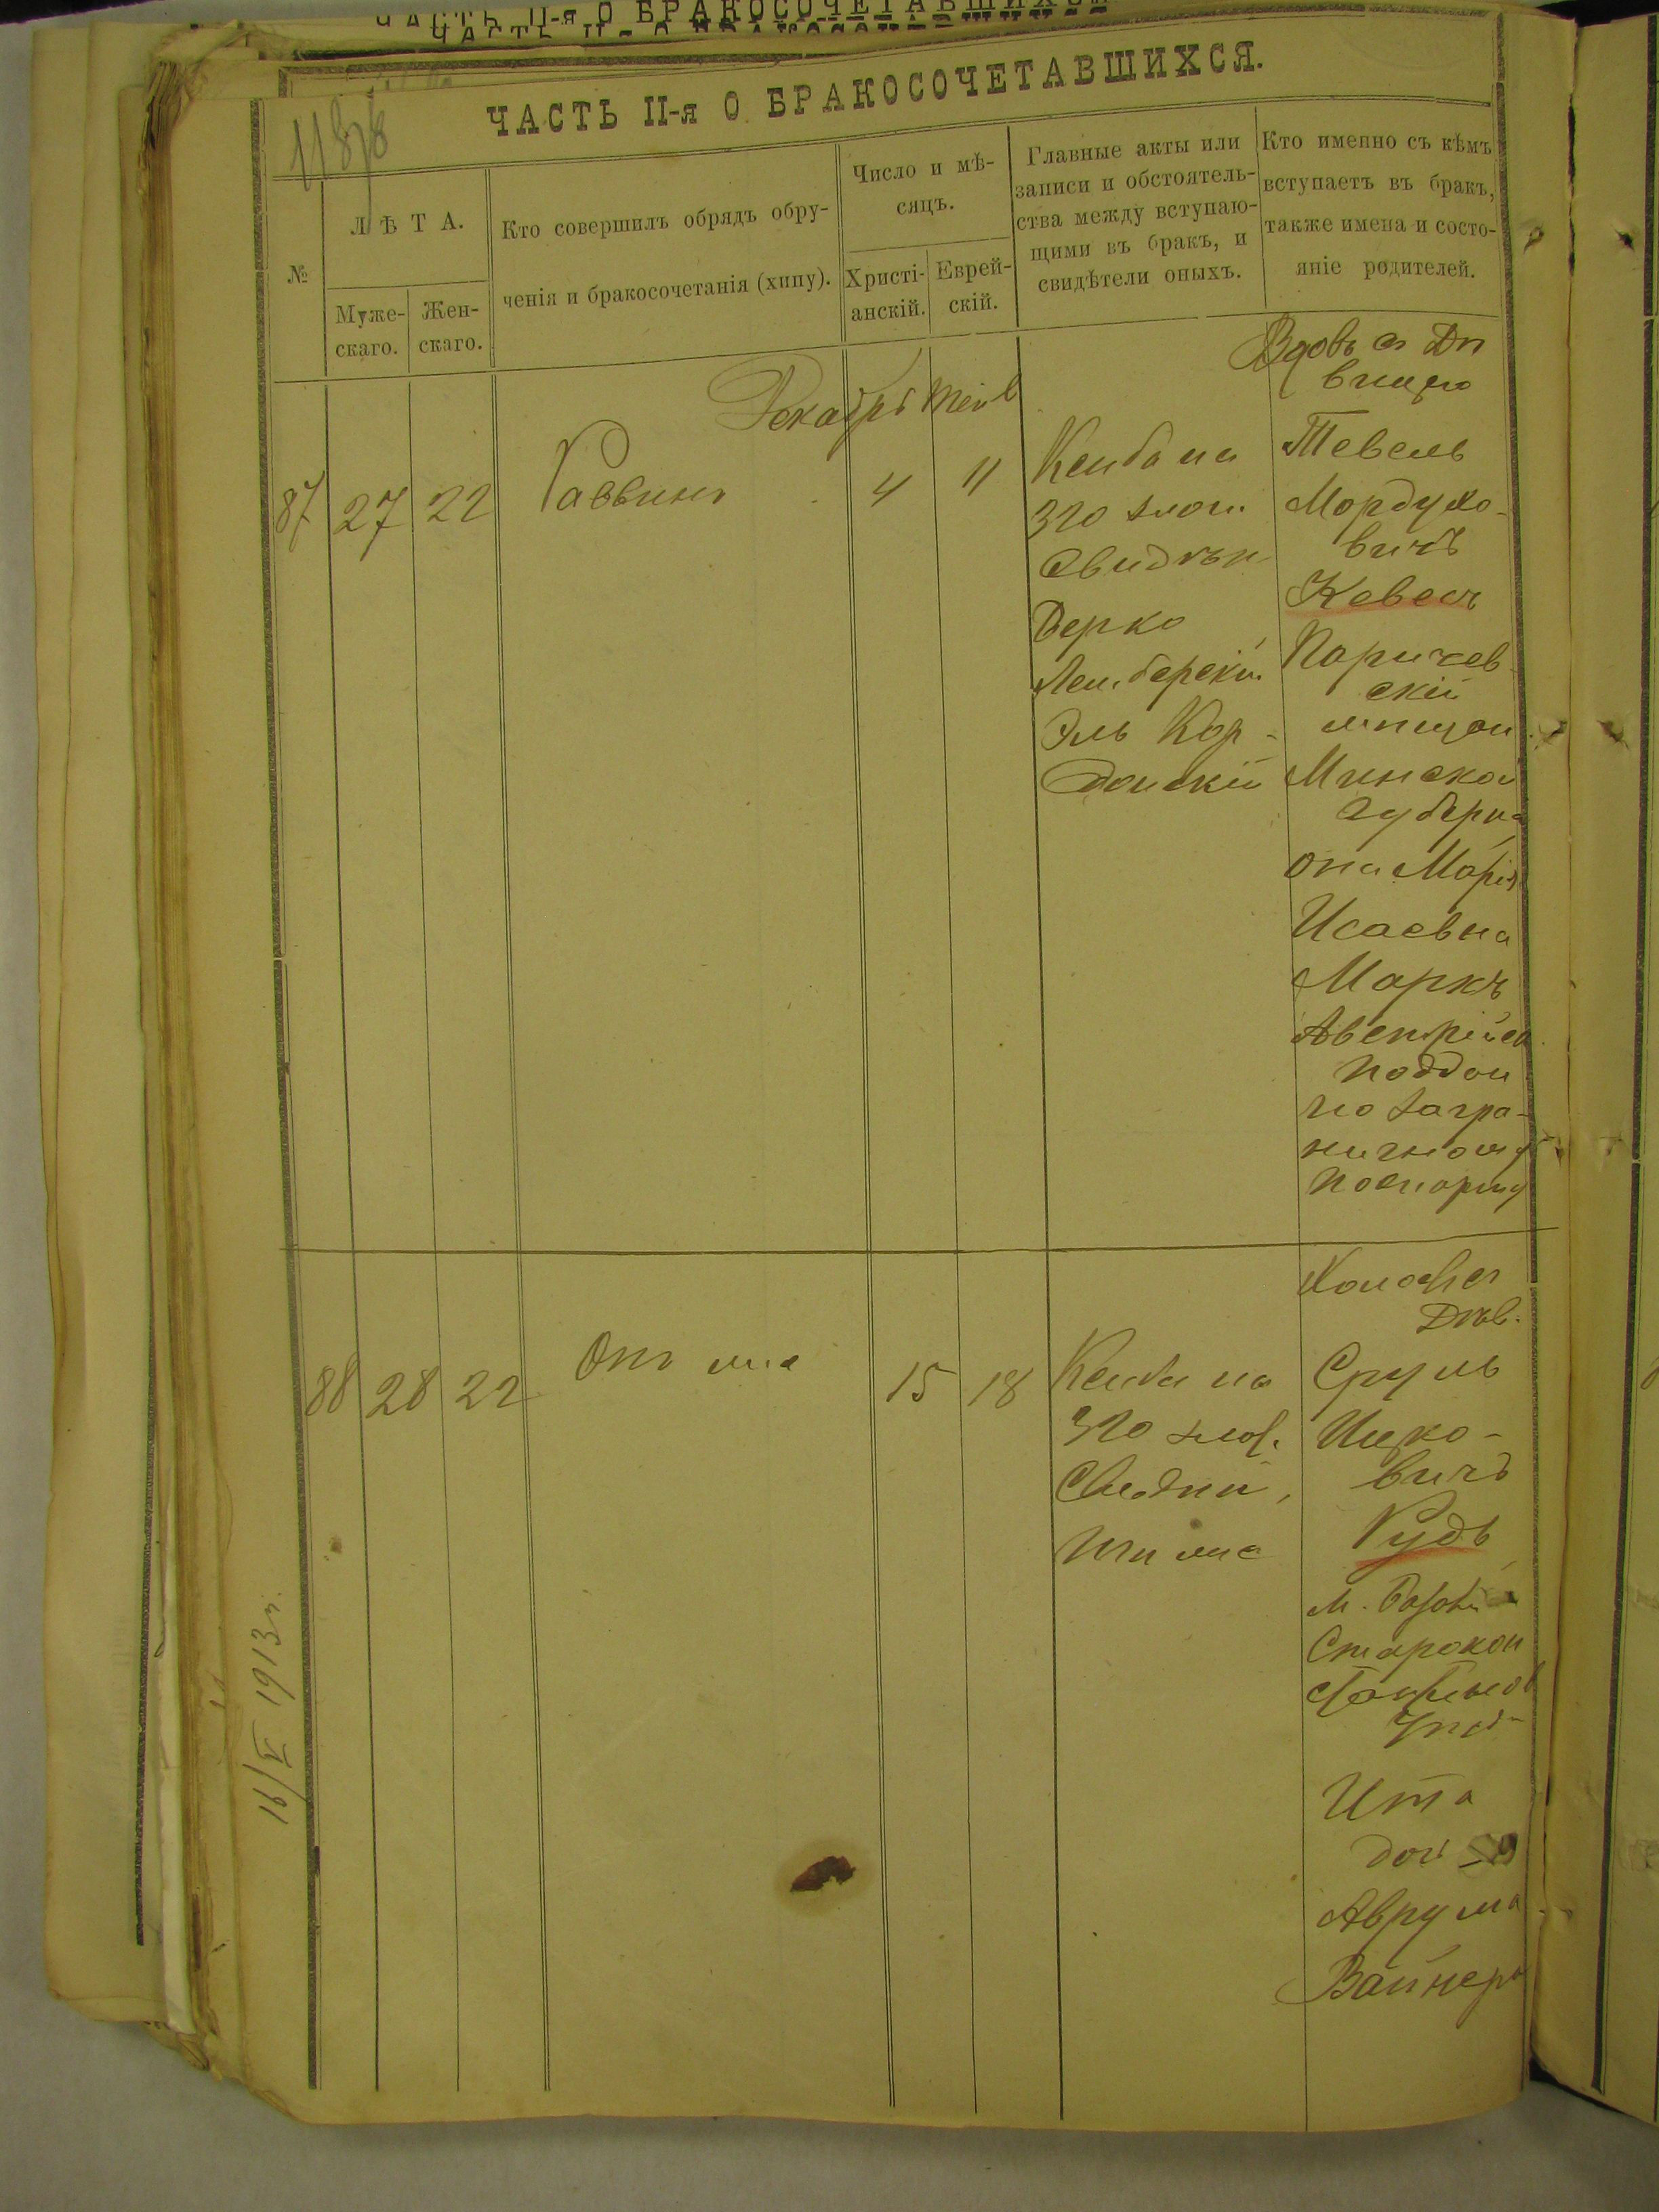 ЧАСТЬ II-я О БРАКОСОЧЕТАВШИХСЯ.
№
ЛѢТА.
Муже-
скаго.
Жен-
скаго.
Кто совершилъ обрядъ обру-
ченія и бракосочетанія (хипу).
Число и мѣ-
сяцъ.
Христі-
анскій.
Еврей-
скій.
Главные акты или
записи и обстоятель-
ства между вступаю-
щими въ бракъ, и
свидѣтели оныхъ.
Кто именно съ кѣмъ
вступаетъ въ бракъ,
также имена и состо-
яніе родителей.
Декабрь
87
27
22
Раввинъ
4
11
на
320 злот
Свидѣт
Берко
Лемберскій
Эль Кор-
донскій
Вдовъ съ Дѣ
вицею
Тевель
Мордухо-
вичъ
Кевесъ
Паричев
скій
мѣщан
Минской
Губерн
она Марія
Исаевна
Маркъ
Австрійск
поддан
по загра-
ничному
паспорту
88
28
22
Онъ же
15
18
на
320 злот.
Свидѣт
тѣ же
Холостъ съ
Дѣв.
Сруль
Ицко-
вичъ
Рудь
м.
Старокон
стантинов
уѣзд
Ита
дочь
Аврума
Вайнера
16/V 1913 г.